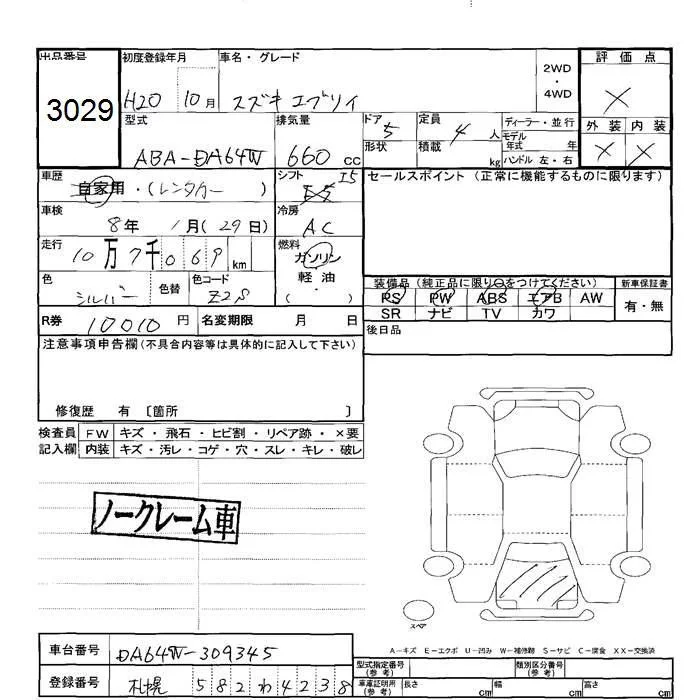 出品番号 初度登録年月 車名・グレード 2WD・4WD 評価点
3029 H20 10月 スズキ エブリイ ×
型式 排気量 ドア 5 定員 4人 ディーラー・並行 外装 内装
ABA-DA64W 660cc 形状 積載 kg モデル年式 年 ハンドル 左・右 × ×
車歴 自家用・(レンタカー) シフト I5 セールスポイント(正常に機能するものに限ります)
車検 8年 1月(29日) 冷房 AC
走行 10万7千069km 燃料 ガソリン
軽油・( )
色 シルバー 色替 色コード Z2S 装備品(純正品に限り○をつけてください) 新車保証書
PS PW ABS エアB AW 有・無
SR ナビ TV カワ
R券 10010円 名変期限 月 日 後日品
注意事項申告欄(不具合内容等は具体的に記入して下さい)
修復歴 有 〔箇所 〕
検査員 FW キズ・飛石・ヒビ割・リペア跡・×要
記入欄 内装 キズ・汚レ・コゲ・穴・スレ・キレ・破レ
ノークレーム車
スペア
A-キズ E-エクボ U-凹み W-補修跡 S-サビ C-腐食 XX-交換済
車台番号 DA64W-309345 型式指定番号(参考) 類別区分番号(参考)
登録番号 札幌 582わ4238 車庫証明用(参考) 長さ cm 幅 cm 高さ cm